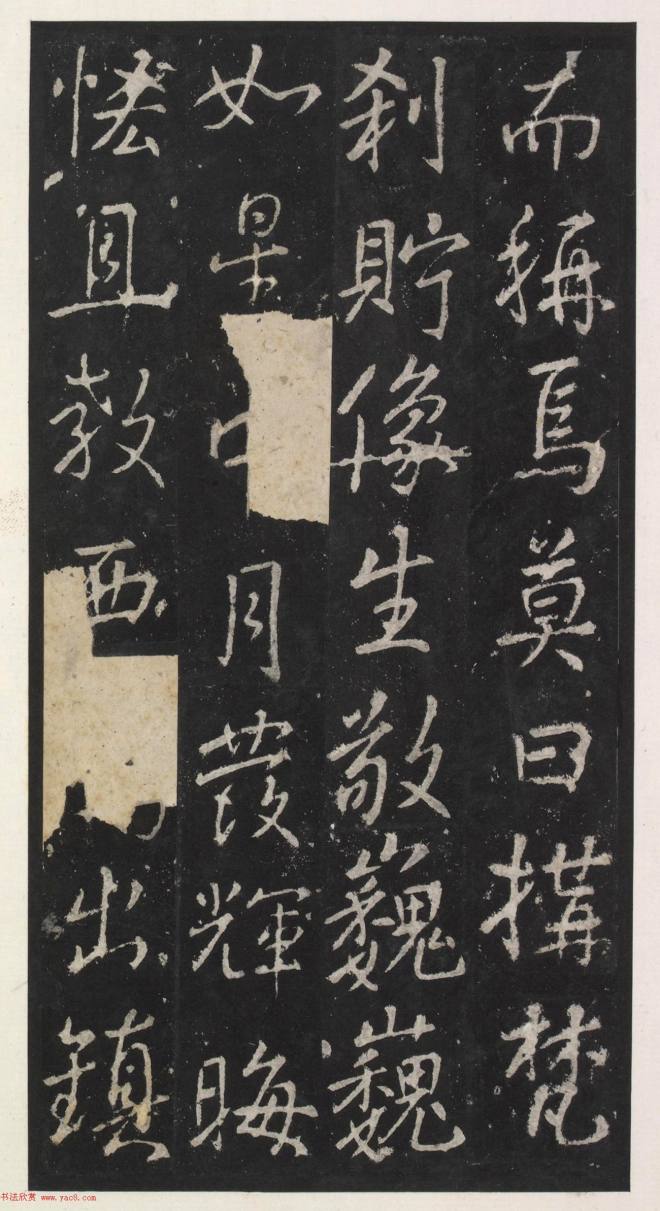 而稱焉莫曰搆梵
刹貯像生敬巍巍
如月發輝晦
且教西出鎮
书法欣赏 www.yac8.com